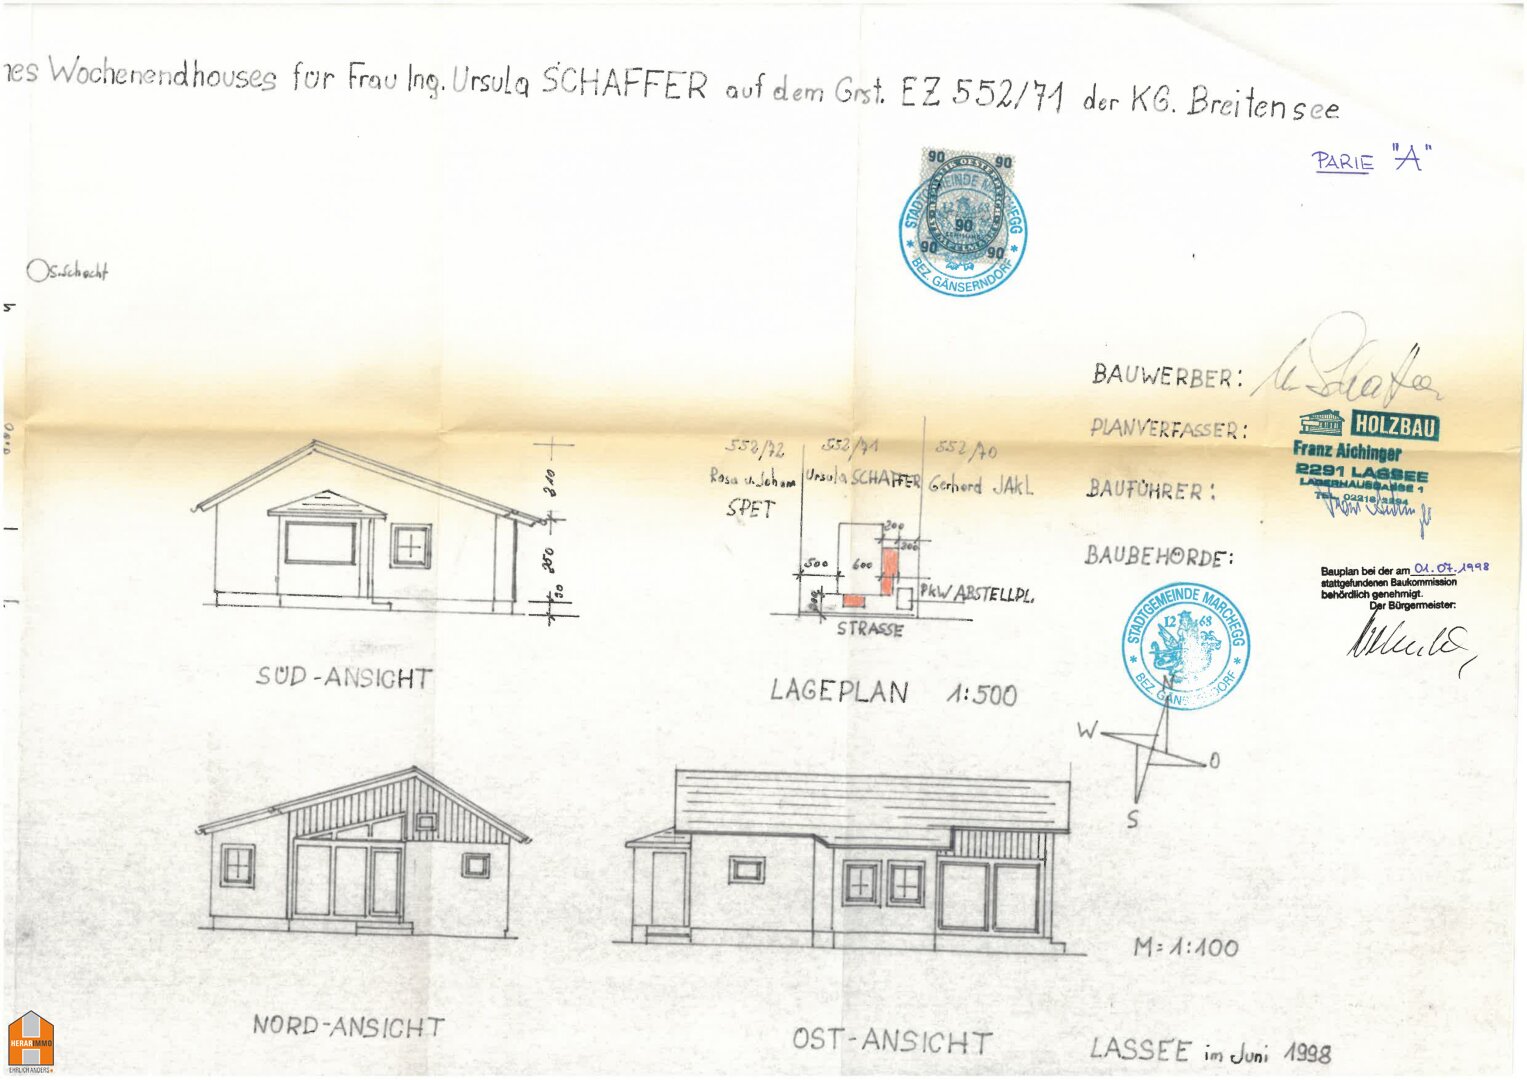 nes Wochenendhouses für Frau Ing. Ursula SCHAFFER auf dem Grst. EZ 552/71 der KG. Breitensee
PARIE "A"
90 90
90
90 90
STADTGEMEINDE MARCHEGG
BEZ. GÄNSERNDORF
S.Schacht
BAUWERBER:
PLANVERFASSER:
HOLZBAU
Franz Aichinger
2291 LASSEE
LAGERHAUSGASSE 1
TEL. 02213/2294
BAUFÜHRER:
BAUBEHÖRDE:
Bauplan bei der am 01.07.1998
stattgefundenen Baukommission
behördlich genehmigt.
Der Bürgermeister:
STADTGEMEINDE MARCHEGG
1268
BEZ. GÄNSERNDORF
210
250
30
SÜD-ANSICHT
552/72 552/71 552/70
Rosa u. Johann Ursula SCHAFFER Gerhard JAKL
SPET
200
200
500 600
300
PKW ABSTELLPL.
STRASSE
LAGEPLAN 1:500
N
W
O
S
M=1:100
NORD-ANSICHT
OST-ANSICHT
LASSEE im Juni 1998
HERARIMMO
EHRLICH ANDERS